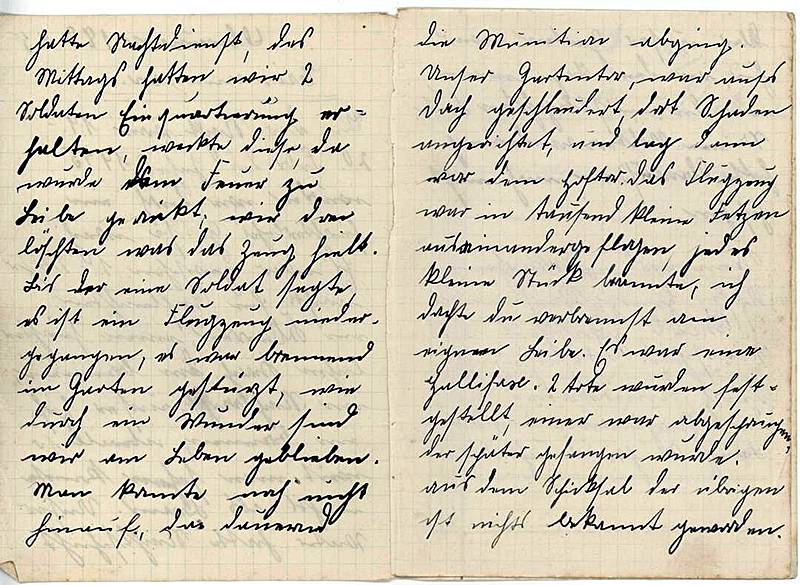 hatte Nachtdienst, des
Mittags hatten wir 2
Soldaten Einquartierung er=
halten, weckte diese, da
wurde dem Feuer zu
Leibe gerückt, wir drei
löschten was das Zeug hielt.
Bis der eine Soldat sagte,
es ist ein Flugzeug nieder-
gegangen, es war brennend
im Garten gestürzt, wie
durch ein Wunder sind
wir am Leben geblieben.
Man konnte noch nicht
hinauf, da dauernd
die Munition abging.
Unser Gartentor, war aufs
Dach geschleudert, dort Schaden
angerichtet, und lag dann
vor dem Hoftor, das Flugzeug
war in tausend kleine Fetzen
auseinandergeflogen, jedes
kleine Stück brannte, ich
dachte du verbrennst am
eignen Leibe. Es war eine
Hallifax. 2 Tote wurden fest=
gestellt, einer war abgesprungen,
der später gefangen wurde.
aus dem Schicksal der übrigen
ist nichts bekannt geworden.